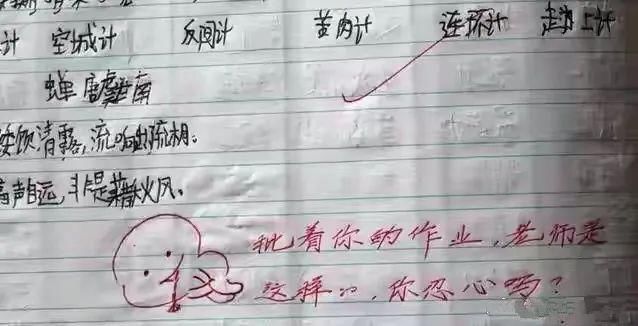 计 空城计 反间计 苦肉计 连环计 走为上计
蝉 虞世南
饮清露,流响出疏桐。
高声自远,非是藉秋风。
批着你的作业,老师是
这样的,你忍心吗?